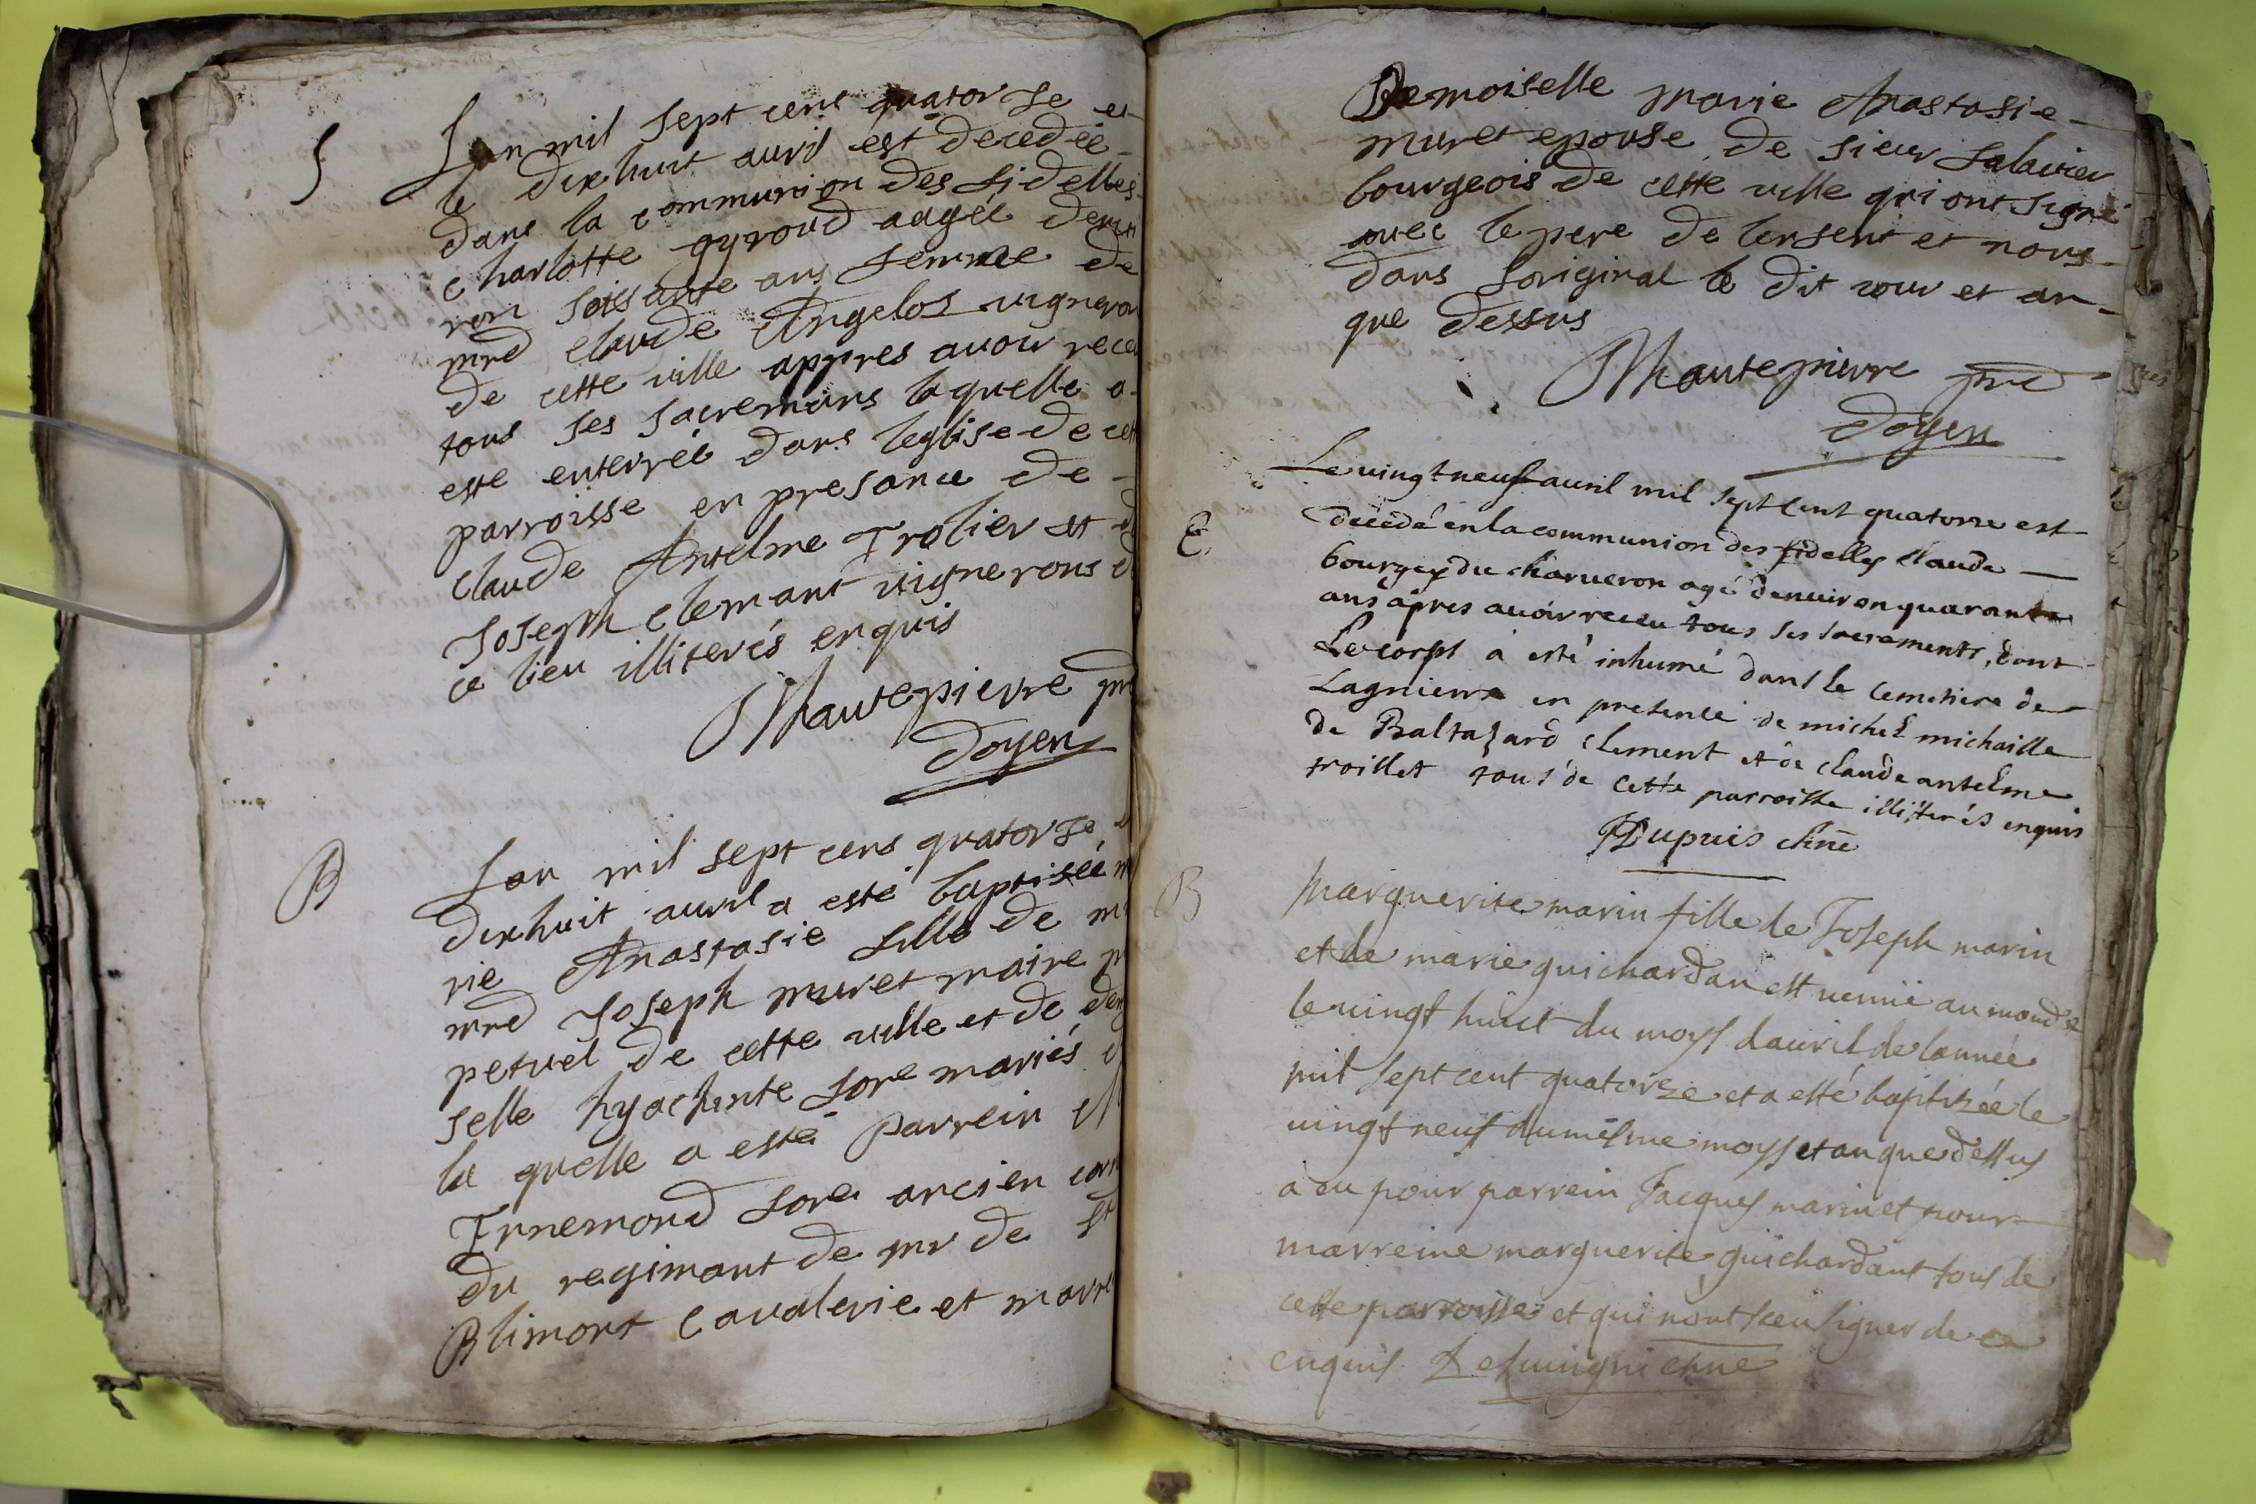 S
Lan mil sept cens quatorse et
le dixhuit auril est decedée
dans la communion des fidelles
charlotte gyroud aagée denui
ron soissante ans femme de
mre claude Angelos uigneron
de cette uille appres auoir receu
tous ses sacremans laquelle a
esté enterrée dans leglise de cet
parroisse en presance de
claude Antelme Trolier et
Joseph clemant uignerons d
ce lieu illiterés enquis
Mantepierre pre
doyen
B
Lan mil sept cens quatorse
dixhuit auril a esté baptisée m
rie Anastasie fille de
mre Joseph muret maire p
petuel de cette uille et de dem
selle hyachinte fore mariés
la quelle a esté parrein
Ennemond fore ancien corn
du regimant de mr de st
Blimont caualerie et marr
Demoiselle marie Anastasie
muret epouse de sieur salauier
bourgeois de cette uille qui ont signé
auec le pere de lensent et nous
dans loriginal le dit iour et an
que dessus
Mantepierre pre
doyen
E
Le uingt neuf auril mil sept cent quatorze est
decedé en la communion des fidelles claude
bourgey du charueron agé denuiron quarante
ans apres auoir receu tous ses sacrements, dont
Le corps a esté inhumé dans le cemetiere de
Lagnieux en presence de michel michaille
de Baltazard clement et de claude antelme
troillet tous de cette parroisse illiterés enquis
Dupuis chne
B
Marguerite marin fille de Joseph marin
et de marie guichardan est uenüe au monde
le uingt huict du moys dauril de lannée
mil sept cent quatorze et a esté baptizée le
uingt neuf du mesme moys et an que dessus
a eu pour parrein Jacques marin et pour
marreine marguerite guichardant tous de
cette parroisse et qui nont sceu signer de ce
enquis Desuingni chne